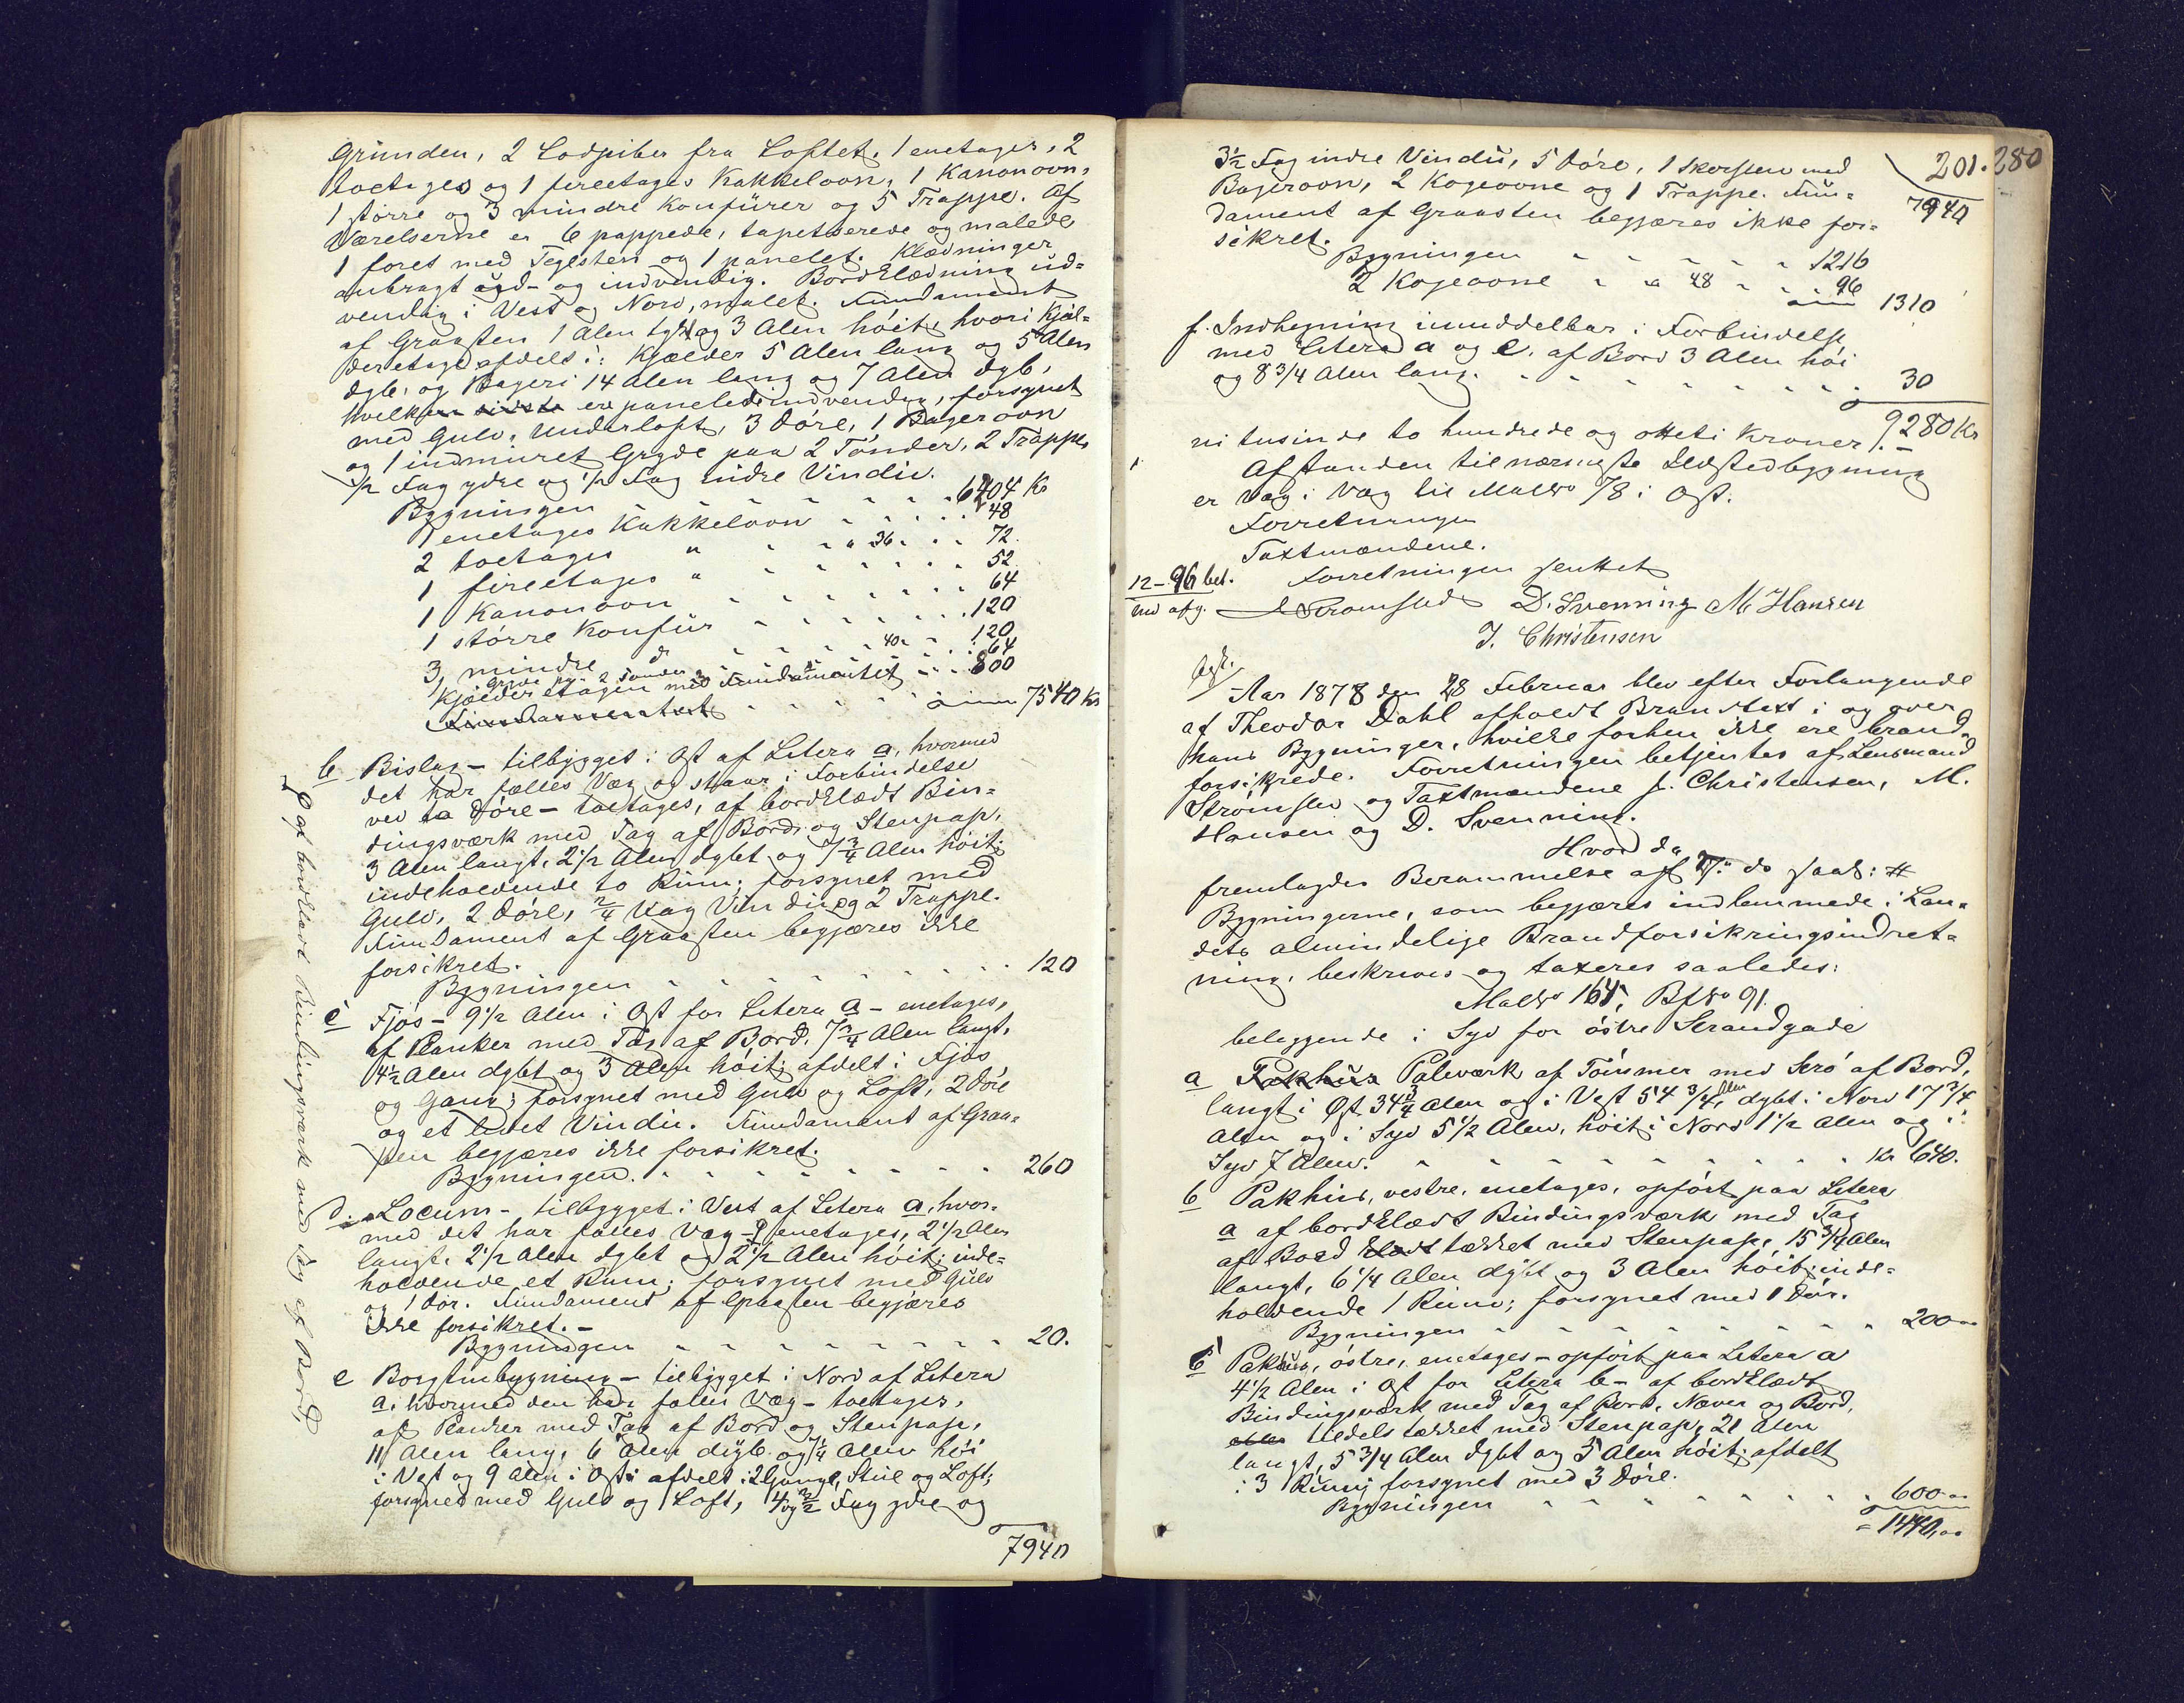 Grunden, 2 Lodpiber fra Loftet, 1 enetages, 2
toetages og 1 fireetages Kakkelovn, 1 Kanonovn,
1 større og 3 mindre Konfürer og 5 Trappe. Af
Værelserne er 6 pappede, tapetserede og malede
1 foret med Teglsten og 1 panelet. Klædninger
anbragt ud- og indvendig. Bordklædning ud-
vendig i Vest og Nord, malet. Fundament
af Graasten 1 Alen tykt og 3 Alen høit, hvori Kjæl-
deretage afdelt i: Kjælder 5 Alen lang og 5 Alen
dyb, og Bageri 14 Alen lang og 7 Alen dyb,
hvilken sidste er panelet indvendig, forsynet
med Gulv, Underloft, 3 Døre, 1 Bagerovn
og 1 indmuret Gryde paa 2 Tønder, 2 Trappe,
1/2 Fag ydre og 1/2 Fag indre Vindu.
Bygningen 6204 Kr
1 enetages Kakkelovn 48
2 toetages " a 36 72
1 fireetages " 52
1 Kanonovn 64
1 større Konfür 120
3 mindre do 40 120
1 Gryde paa 2 Tønder 64
Kjælderetagen med Fundamentet 800
Fundamentet 7540 Kr
b Bislag - tilbygget i Øst af Litera a, hvormed
det har fælles Væg og staar i Forbindelse
ved to Døre - toetages, af bordklædt Bin-
dingsværk med Tag af Bord og Stenpap,
3 Alen langt, 2 1/2 Alen dybt og 7 3/4 Alen høit;
indeholdende to Rum; forsynet med
Gulv, 2 Døre, 2/4 Fag Vindu og 2 Trappe.
Fundament af Graasten begjæres ikke
forsikret.
Bygningen 120
c Fjøs - 9 1/2 Alen i Øst for Litera a - enetages,
af Planker med Tag af Bord, 7 3/4 Alen langt,
4 1/2 Alen dybt og 3 Alen høit; afdelt i Fjøs
og Gang; forsynet med Gulv og Loft, 2 Døre
og et lidet Vindu. Fundament af Graa-
sten begjæres ikke forsikret.
Bygningen 260
d Locum - tilbygget i Vest af Litera a, hvor-
med det har fælles Væg - enetages, 2 1/2 Alen
langt, 2 1/2 Alen dybt og 2 1/2 Alen høit; inde-
holdende et Rum; forsynet med Gulv
og 1 Dør. Fundament af Graasten begjæres
ikke forsikret.-
Bygningen 20.
e Borgstubygning - tilbygget i Nord af Litera
a, hvormed den har fælles Væg - toetages,
af Planker med Tag af Bord og Stenpap,
11 Alen lang, 6 Alen dyb og 7 1/4 Alen høi
i Vest og 9 Alen i Øst; afdelt i 2 Gange, Stue og Loft;
forsynet med Gulv og Loft, 4 og 2/2 Fag ydre og
7940
af bordklædt Bindingsværk med Tag af Bord,
201. 280
3 1/2 Fag indre Vindu, 5 Døre, 1 Skorsten med
Bagerovn, 2 Kogeovne og 1 Trappe. Fun-
dament af Graasten begjæres ikke for-
sikret.
7940
Bygningen 1216
2 Kogeovne a 48 96
1310
f. Indhegning inmiddelbar i Forbindelse
med Litera a og e, af Bord 3 Alen høi
og 8 3/4 Alen lang. 30
9280 Kr
ni tusinde to hundrede og otteti Kroner.
Afstanden til nærmeste Ildstedbygning
er Væg i Væg til Matrno 78 i Øst.
Forretningen
Taxtmændene.
12-96 bet.
Forretningen sluttet
ind afg.
Strømsted D. Svenning M Hansen
J. Christensen
Aar 1878 den 28 Februar blev efter Forlangende
af Theodor Dahl afholdt Brandtaxt i og over
hans Bygninger, hvilke forhen ikke ere brand-
forsikrede. Forretningen betjentes af Lensmand
Strømsted og Taxtmændene J. Christensen, M.
Hansen og D. Svenning.
Hvor da
fremlagdes Berammelse af 27. ds saal: #
Bygningerne, som begjæres indlemmede i Lan-
dets almindelige Brandforsikringsindret-
ning, beskrives og taxeres saaledes:
Matrno 164, Bfno 91.
beliggende i Syd for østre Strandgade
a Pakhus Paleværk af Tømmer med Strø af Bord,
langt i Øst 34 3/4 Alen og i Vest 54 3/4 Alen, dybt i Nord 17 3/4
Alen og i Syd 5 1/2 Alen, høit i Nord 1 1/2 Alen og i
Syd 7 Alen. Kr 640.
b Pakhus, vestre, enetages, opført paa Litera
a af bordklædt Bindingsværk med Tag
af Bord klædt tækket med Stenpap, 15 3/4 Alen
langt, 6 1/4 Alen dybt og 3 Alen høit; inde-
holdende 1 Rum; forsynet med 1 Dør.
Bygningen 200 "
c Pakhus, østre, enetages - opført paa Litera a
4 1/2 Alen i Øst for Litera b - af bordklædt
Bindingsværk med Tag af Bord, Næver og Bord,
tildels tækket med Stenpap, 21 Alen
langt, 5 3/4 Alen dybt og 5 Alen høit; afdelt
i 3 Rum; forsynet med 3 Døre.
Bygningen 600 "
= 1440,00